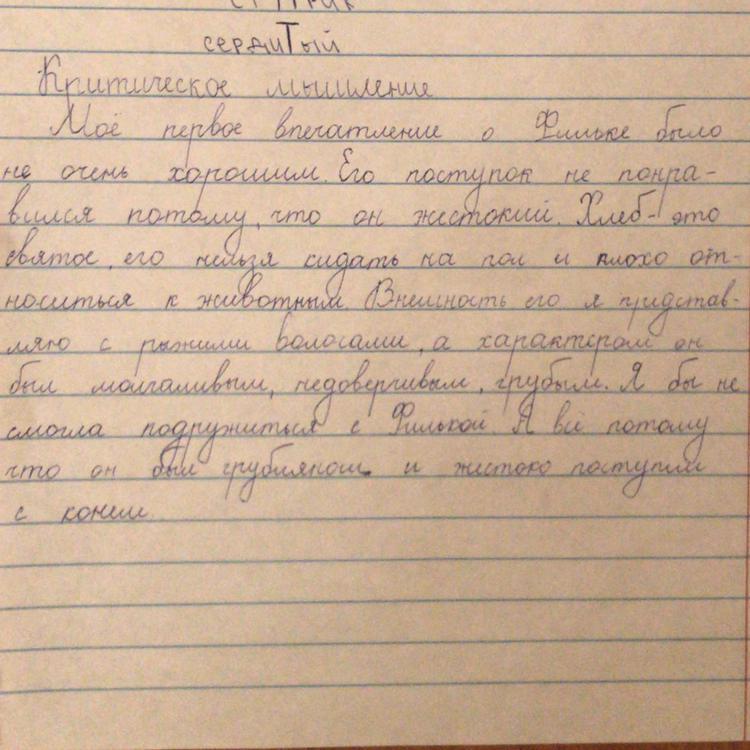 сердиТый
Критическое мышление
Моё первое впечатление о Фильке было
не очень хорошим. Его поступок не понра-
вился потому, что он жестокий. Хлеб- это
святое, его нельзя кидать на пол и плохо от-
носиться к животным. Внешность его я представ-
ляю с рыжими волосами, а характером он
был молчаливым, недоверчивым, грубым. Я бы не
смогла подружиться с Филькой. А всё потому
что он был грубияном и жестоко поступил
с конём.